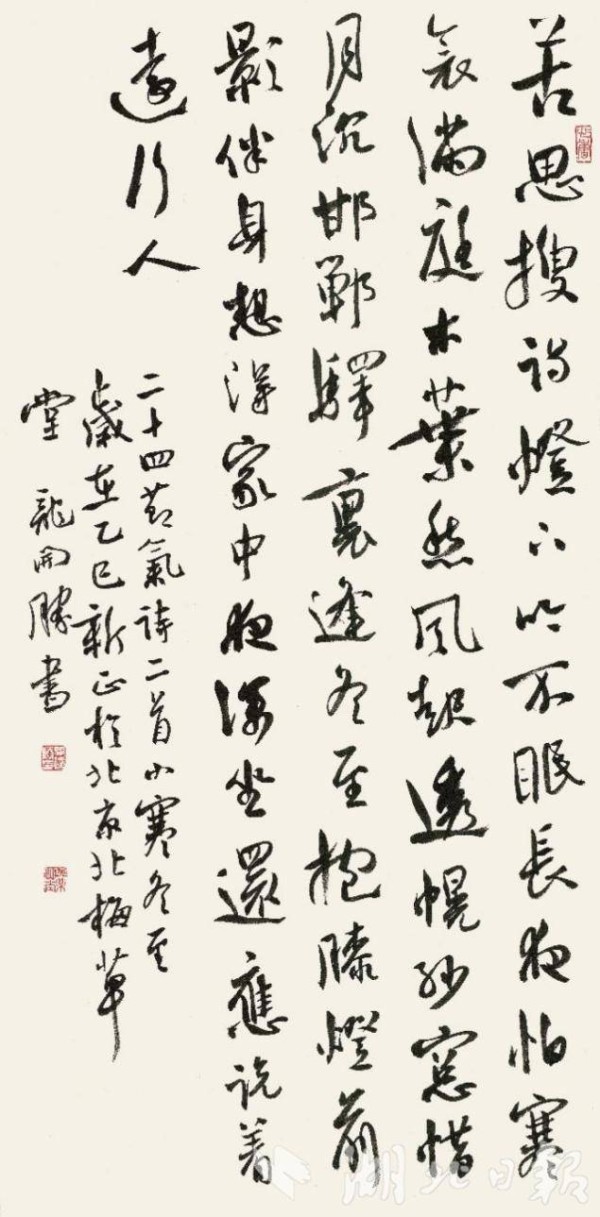 苦思搜詩燈下吟不眠長夜怕寒
衾滿庭木葉愁風起透幌紗窗惜
月沉邯鄲驛裏逢冬至抱膝燈前
影伴身想得家中夜深坐還應説着
遠行人
二十四節氣詩二首小寒冬至
歲在乙巳新正於北京北梅草
堂 龍開勝書
湖北日報